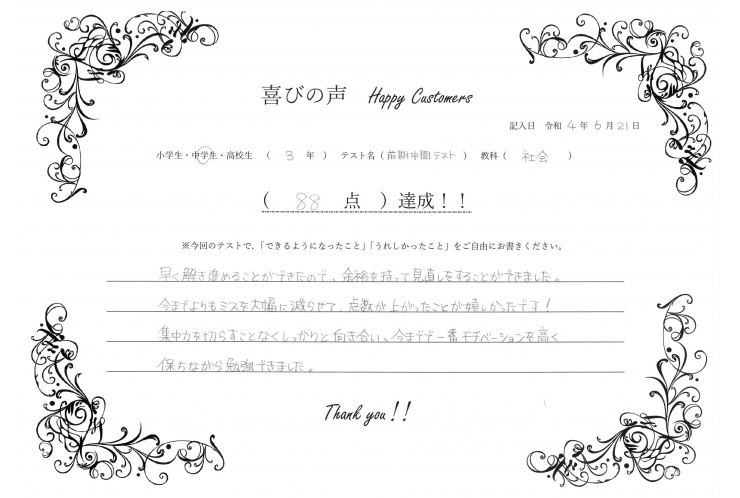 喜びの声 Happy Customers
記入日 令和 4 年 6 月 21 日
小学生・中学生・高校生 ( 3 年 ) テスト名 ( 前期中間テスト ) 教科 ( 社会 )
( 88 点 ) 達成！！
※今回のテストで、「できるようになったこと」「うれしかったこと」をご自由にお書きください。
早く解き進めることができたので、余裕を持って見直しをすることができました。
今までよりもミスを大幅に減らせて、点数が上がったことが嬉しかったです！
集中力を切らすことなくしっかりと向き合い、今までで一番モチベーションを高く
保ちながら勉強できました。
Thank you!!